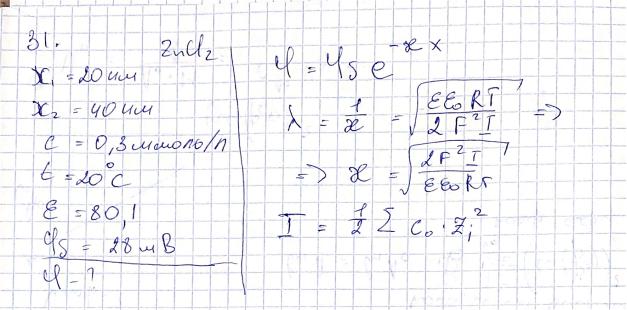 31. ZnCl₂
x₁ = 20 нм
x₂ = 40 нм
c = 0,3 ммоль/л
t = 20°C
ε = 80,1
φδ = 28 мВ
φ - ?
φ = φδ e^(-æx)
λ = 1/æ = √(εε₀RT / 2F²I) =>
=> æ = √(2F²I / εε₀RT)
I = 1/2 Σ c₀ · zᵢ²